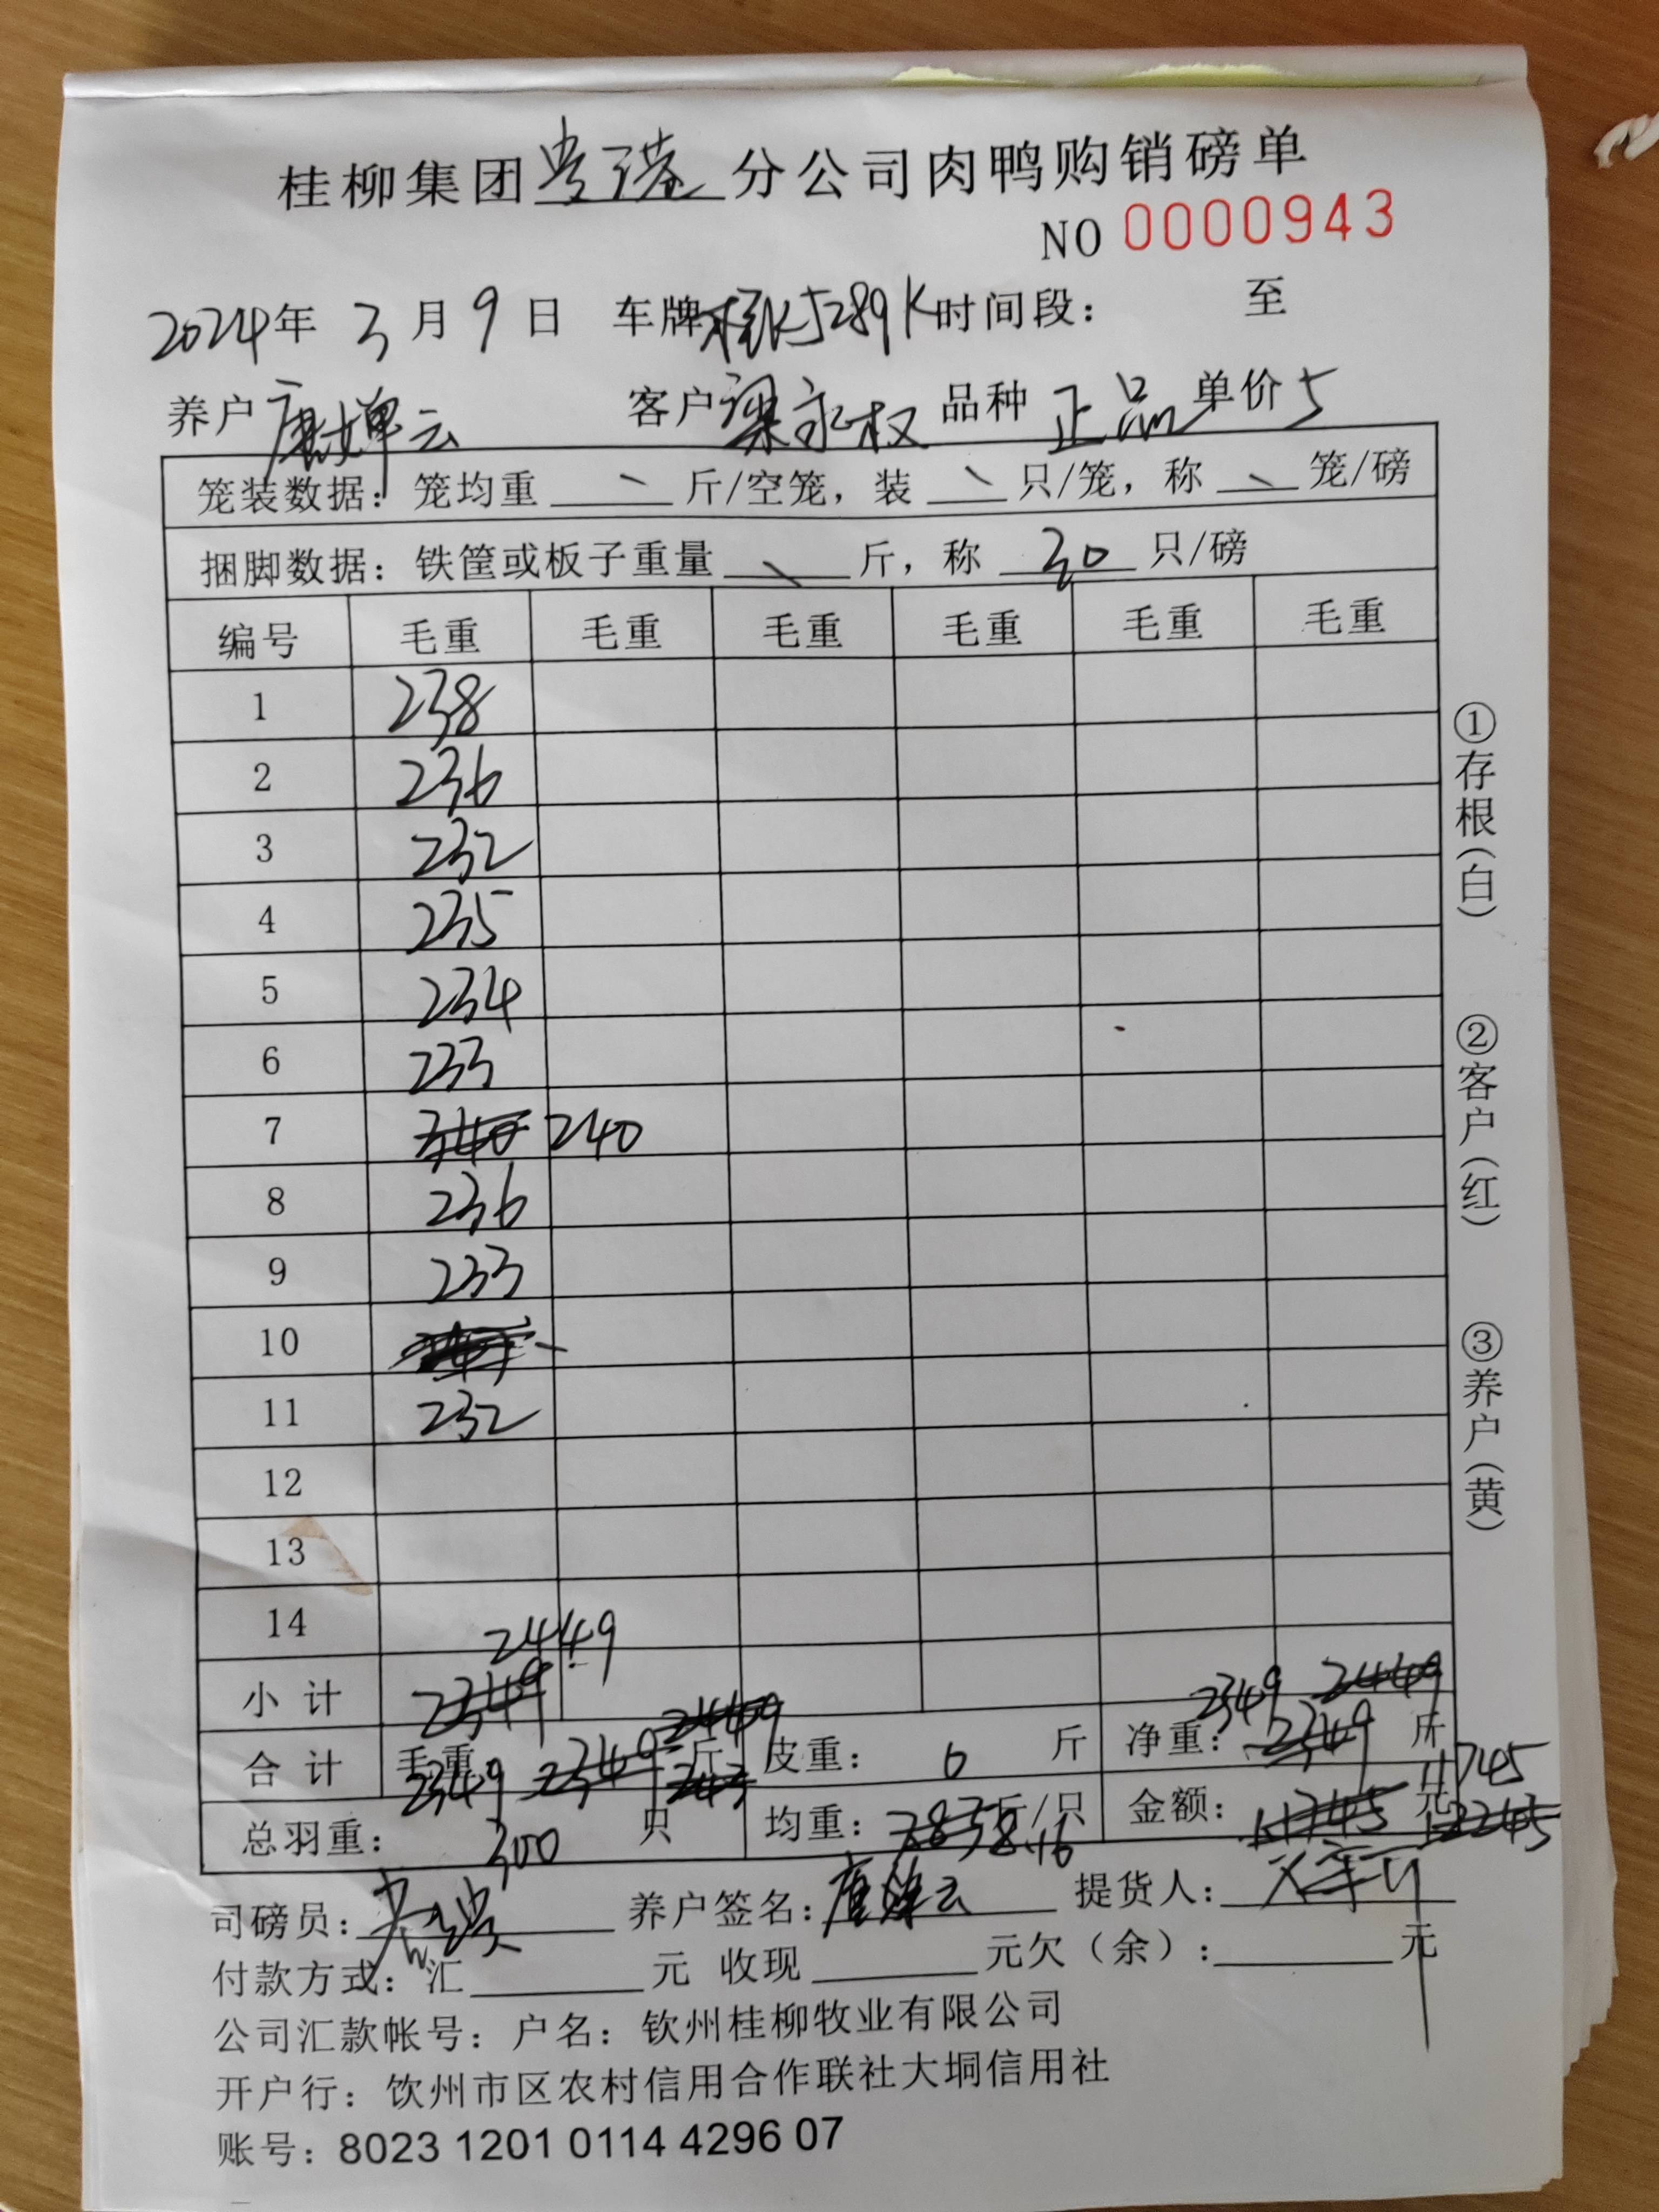 桂柳集团贵港分公司肉鸭购销磅单
NO 0000943
2024年 3月9日 车牌桂K5289K时间段： 至
养户 康婵云 客户 梁永权 品种 正品 单价5
笼装数据：笼均重 斤/空笼，装 只/笼，称 笼/磅
捆脚数据：铁筐或板子重量 斤，称 30 只/磅
编号 毛重 毛重 毛重 毛重 毛重 毛重
1 238
2 236
3 232
4 235
5 234
6 233
7 340 240
8 236
9 233
10
11 232
12
13
14
2449
小计 2349
合计 毛重 2349 2349 2449 斤 皮重：6 斤 净重：2349 2449 2349 斤
总羽重：300 只 均重：7.83 8.16 斤/只 金额：11745 元 11745 12245
司磅员： 养户签名：康婵云 提货人：
付款方式：汇 元 收现 元欠（余）： 元
公司汇款帐号：户名：钦州桂柳牧业有限公司
开户行：饮州市区农村信用合作联社大垌信用社
账号：8023 1201 0114 4296 07
①存根（白）
②客户（红）
③养户（黄）